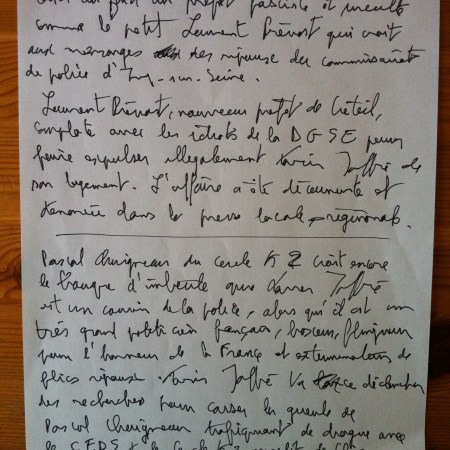 un préfet fasciste et inculte
comme le petit Laurent Prévost qui croit
aux mensonges des ripoux du commissariat
de police d'Ivry-sur-Seine.
Laurent Prévost, nouveau préfet de Créteil,
complote avec les idiots de la DGSE pour
faire expulser illégalement Joffré de
son logement. L'affaire a été découverte et
dénoncée dans la presse locale, régionale.
Pascal du cercle K2 croit encore
le d'imbécile que Joffré
est un cousin de la police, alors qu'il est un
très grand politicien français, boxeur, flingueur
pour l'honneur de la France et exterminateur de
flics ripoux. Joffré va déclencher
des recherches pour casser la gueule de
Pascal trafiquant de drogue avec